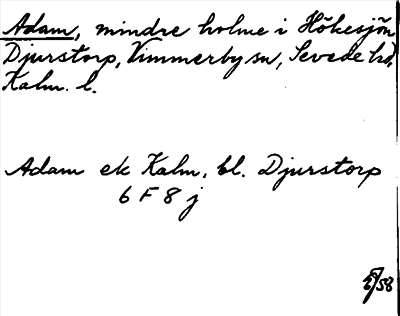 Adam, mindre holme i Hökesjön
Djurstorp, Vimmerby sn, Sevede hd,
Kalm. l.
Adam ek Kalm, bl. Djurstorp
6 F 8 j
58